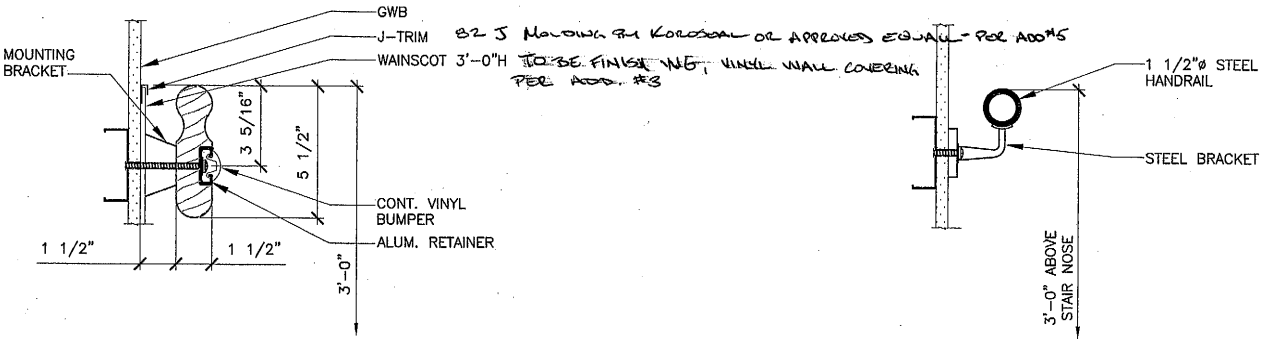 GWB
J-TRIM 82 J MOLDING BY KOROSEAL OR APPROVED EQUALL - PER ADD#5
MOUNTING
BRACKET
WAINSCOT 3'-0"H TO BE FINISH WE, VINYL WALL COVERING
PER ADD. #3
3 5/16"
5 1/2"
CONT. VINYL
BUMPER
ALUM. RETAINER
1 1/2"
1 1/2"
3'-0"
1 1/2"ø STEEL
HANDRAIL
STEEL BRACKET
3'-0" ABOVE
STAIR NOSE